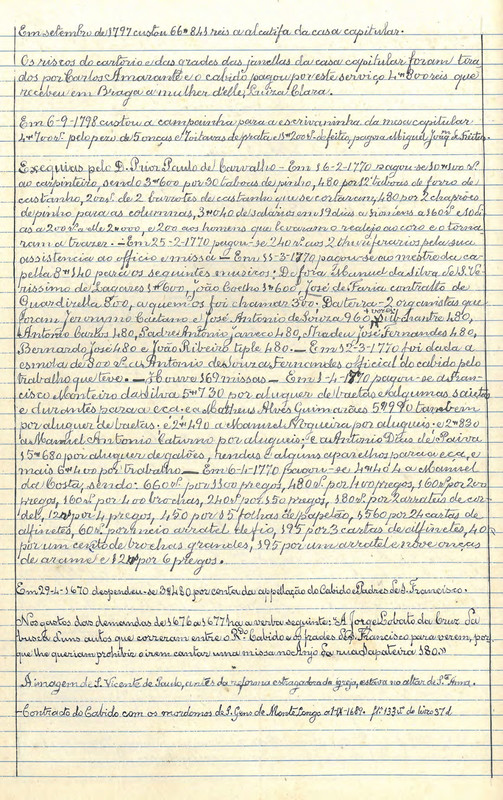 Em setembro de 1797 custou 66$841 reis a alcatifa da casa capitular.
Os riscos do cartorio e das grades das janellas da casa capitular foram tira
dos por Carlos Amarante e o cabido pagou por este serviço 4$800 reis que
recebeu em Braga a mulher d'elle, Luiza Clara.
Em 6-9-1798 custou a campainha para a escrivaninha da mesa capitular
4$700 rs. pelo pezo de 5 onças e 7 oitavas de prata e 1$200 rs. de feitio, pagos a Miguel Joaqm de Freitas.
Exequias pelo D. Prior Paulo de Carvalho - Em 16-2-1770 pagou-se 10$100 rs
ao carpinteiro, sendo 3$600 por 30 taboas de pinho, 480 por 12 taboas de forro de
castanho, 200 rs. de 2 barrotes de castanho que se cortaram, 480 por 2 chapões
de pinho para as columnas, 3$040 de salarios em 19 dias a homens a 160 rs. e 10 di-
as a 200 rs. a elle 2$000, e 200 aos homens que levaram o realejo ao coro e o torna
ram a trazer. - Em 25-2-1770 pagou-se 240 rs. aos 2 thuriferarios pela sua
assistencia ao officio e missa - Em 11-3-1770 pagou-se ao mestre da ca
pella 8$140 para os seguintes musicos: De fora Manuel da Silva de
rissimo de Lagares 1$600, João Coelho 1$600, José de Faria contralto de
Guardizella 800, a quem os foi chamar 300. Da terra - 2 organistas que
foram Jeronimo Caetano e José Antonio de Souza 960, subchantre 480,
Antonio Carlos 480, Padre Antonio Janeco 480, Thadeu José Fernandes 480,
Bernardo José 480 e João Ribeiro tiple 480. - Em 12-3-1770 foi dada a
esmola de 800 rs. a Antonio de Souza Fernandes official do cabido pelo
trabalho que teve. - Houve 369 missas - Em 1-4-1770 pagou-se a Fran-
cisco Monteiro da Silva 5$730 por aluguer de baetas e algumas saietas
e durantes para a eça, e a Matheus Alves Guimarães 5$990 tambem
por aluguer de baetas; e 2$490 a Manuel Nogueira por alugueis; e 2$830
a Manuel Antonio Caturno por alugueis; e a Antonio Dias de Paiva
15$680 por aluguer de galões, rendas e alguns aparelhos para a eça, e
mais 6$400 por trabalho - Em 6-4-1770 pagou-se 4$404 a Manuel
da Costa, sendo: 660 rs. por 1100 pregos, 480 rs. por 400 pregos, 160 rs. por 200
pregos, 160 rs. por 400 brochas, 240 rs. por 350 pregos, 180 rs. por 2 arrateis de cor-
del, 12 rs. por 4 pregos, 450 por 15 folhas de papelão, 1560 por 24 cartas de
alfinetes, 60 rs. por meio arratel de fio, 195 por 3 cartas de alfinetes, 40
por um cento de brochas grandes, 195 por um arratel e nove onças
de arame e 12 rs. por 6 pregos.
Em 29-4-1670 despendeu-se 3$480 por conta da appellação do Cabido e Padres de S. Francisco.
Nos gastos das demandas de 1676 a 1677 ha a verba seguinte: "A Jorge Lobato da Cruz da
busca d'uns autos que correram entre o Rdo Cabido e os frades de S. Francisco para verem, por
que lhe queriam prohibir o irem cantar uma missa no Anjo da rua Sapateira 180.»
A imagem de S. Vicente de Paulo, antes da reforma estragadora da igreja, esteva no altar de Sta. Anna.
Contracto do Cabido com os mordomos de S. Gens de Monte Longo a 1-IX-1689. fls. 133 vs. do livro 371